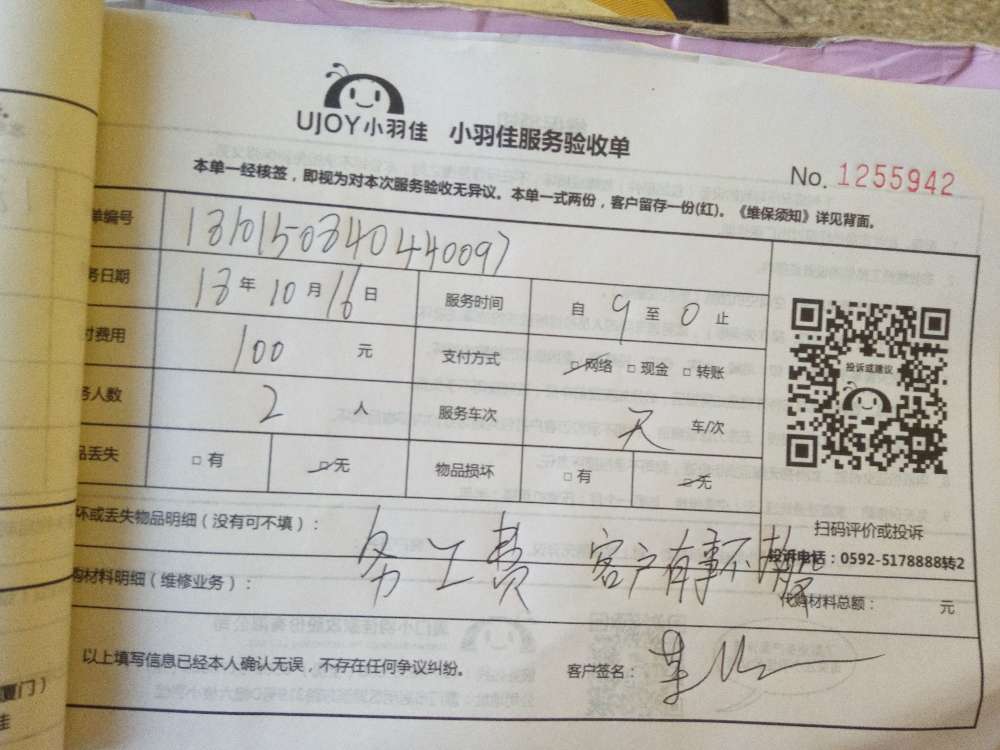 UJOY小羽佳 小羽佳服务验收单
No. 1255942
本单一经核签，即视为对本次服务验收无异议。本单一式两份，客户留存一份(红)。《维保须知》详见背面。
单编号 1810150340440097
务日期 18年10月16日 服务时间 自9至0止
付费用 100 元 支付方式 □网络 □现金 □转账
务人数 2 人 服务车次 无 车/次
品丢失 □有 □无 物品损坏 □有 □无
投诉或建议
扫码评价或投诉
投诉电话：0592-5178888转2
坏或丢失物品明细（没有可不填）：
务工费 客户有事不做
购材料明细（维修业务）： 代购材料总额： 元
以上填写信息已经本人确认无误，不存在任何争议纠纷。 客户签名：
厦门）
佳